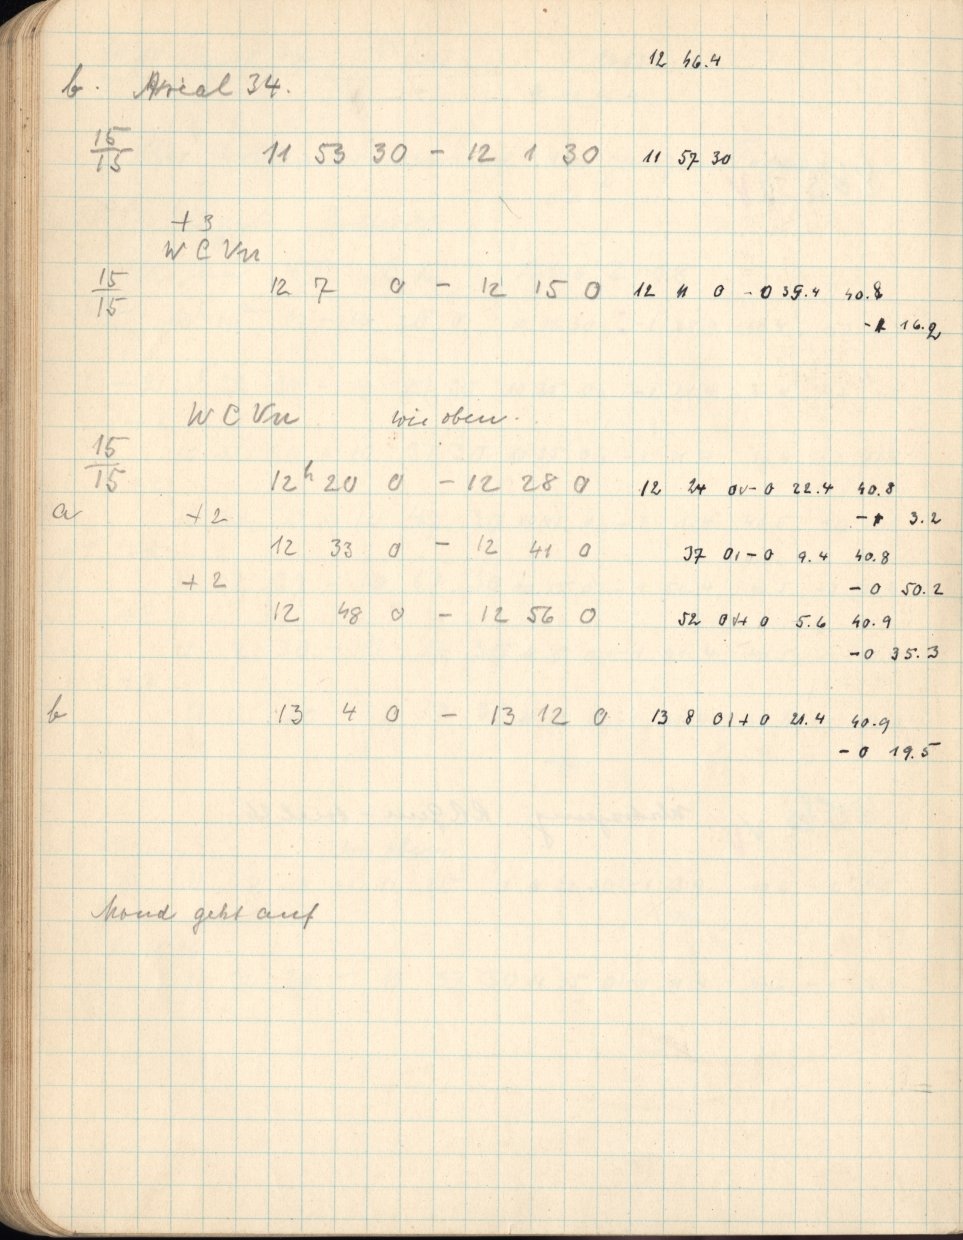 12 46.4
b. Areal 34.
15/15 11 53 30 - 12 1 30 11 57 30
+3
W C Vn
15/15 12 7 0 - 12 15 0 12 11 0 - 0 39.4 40.8
-1 16.2
W C Vn wie oben.
15/15 12h 20 0 - 12 28 0 12 24 0 - 0 22.4 40.8
a +2 -1 3.2
12 33 0 - 12 41 0 37 0 - 0 9.4 40.8
+2 -0 50.2
12 48 0 - 12 56 0 52 0 + 0 5.6 40.9
-0 35.3
b 13 4 0 - 13 12 0 13 8 0 + 0 21.4 40.9
-0 19.5
Mond geht auf